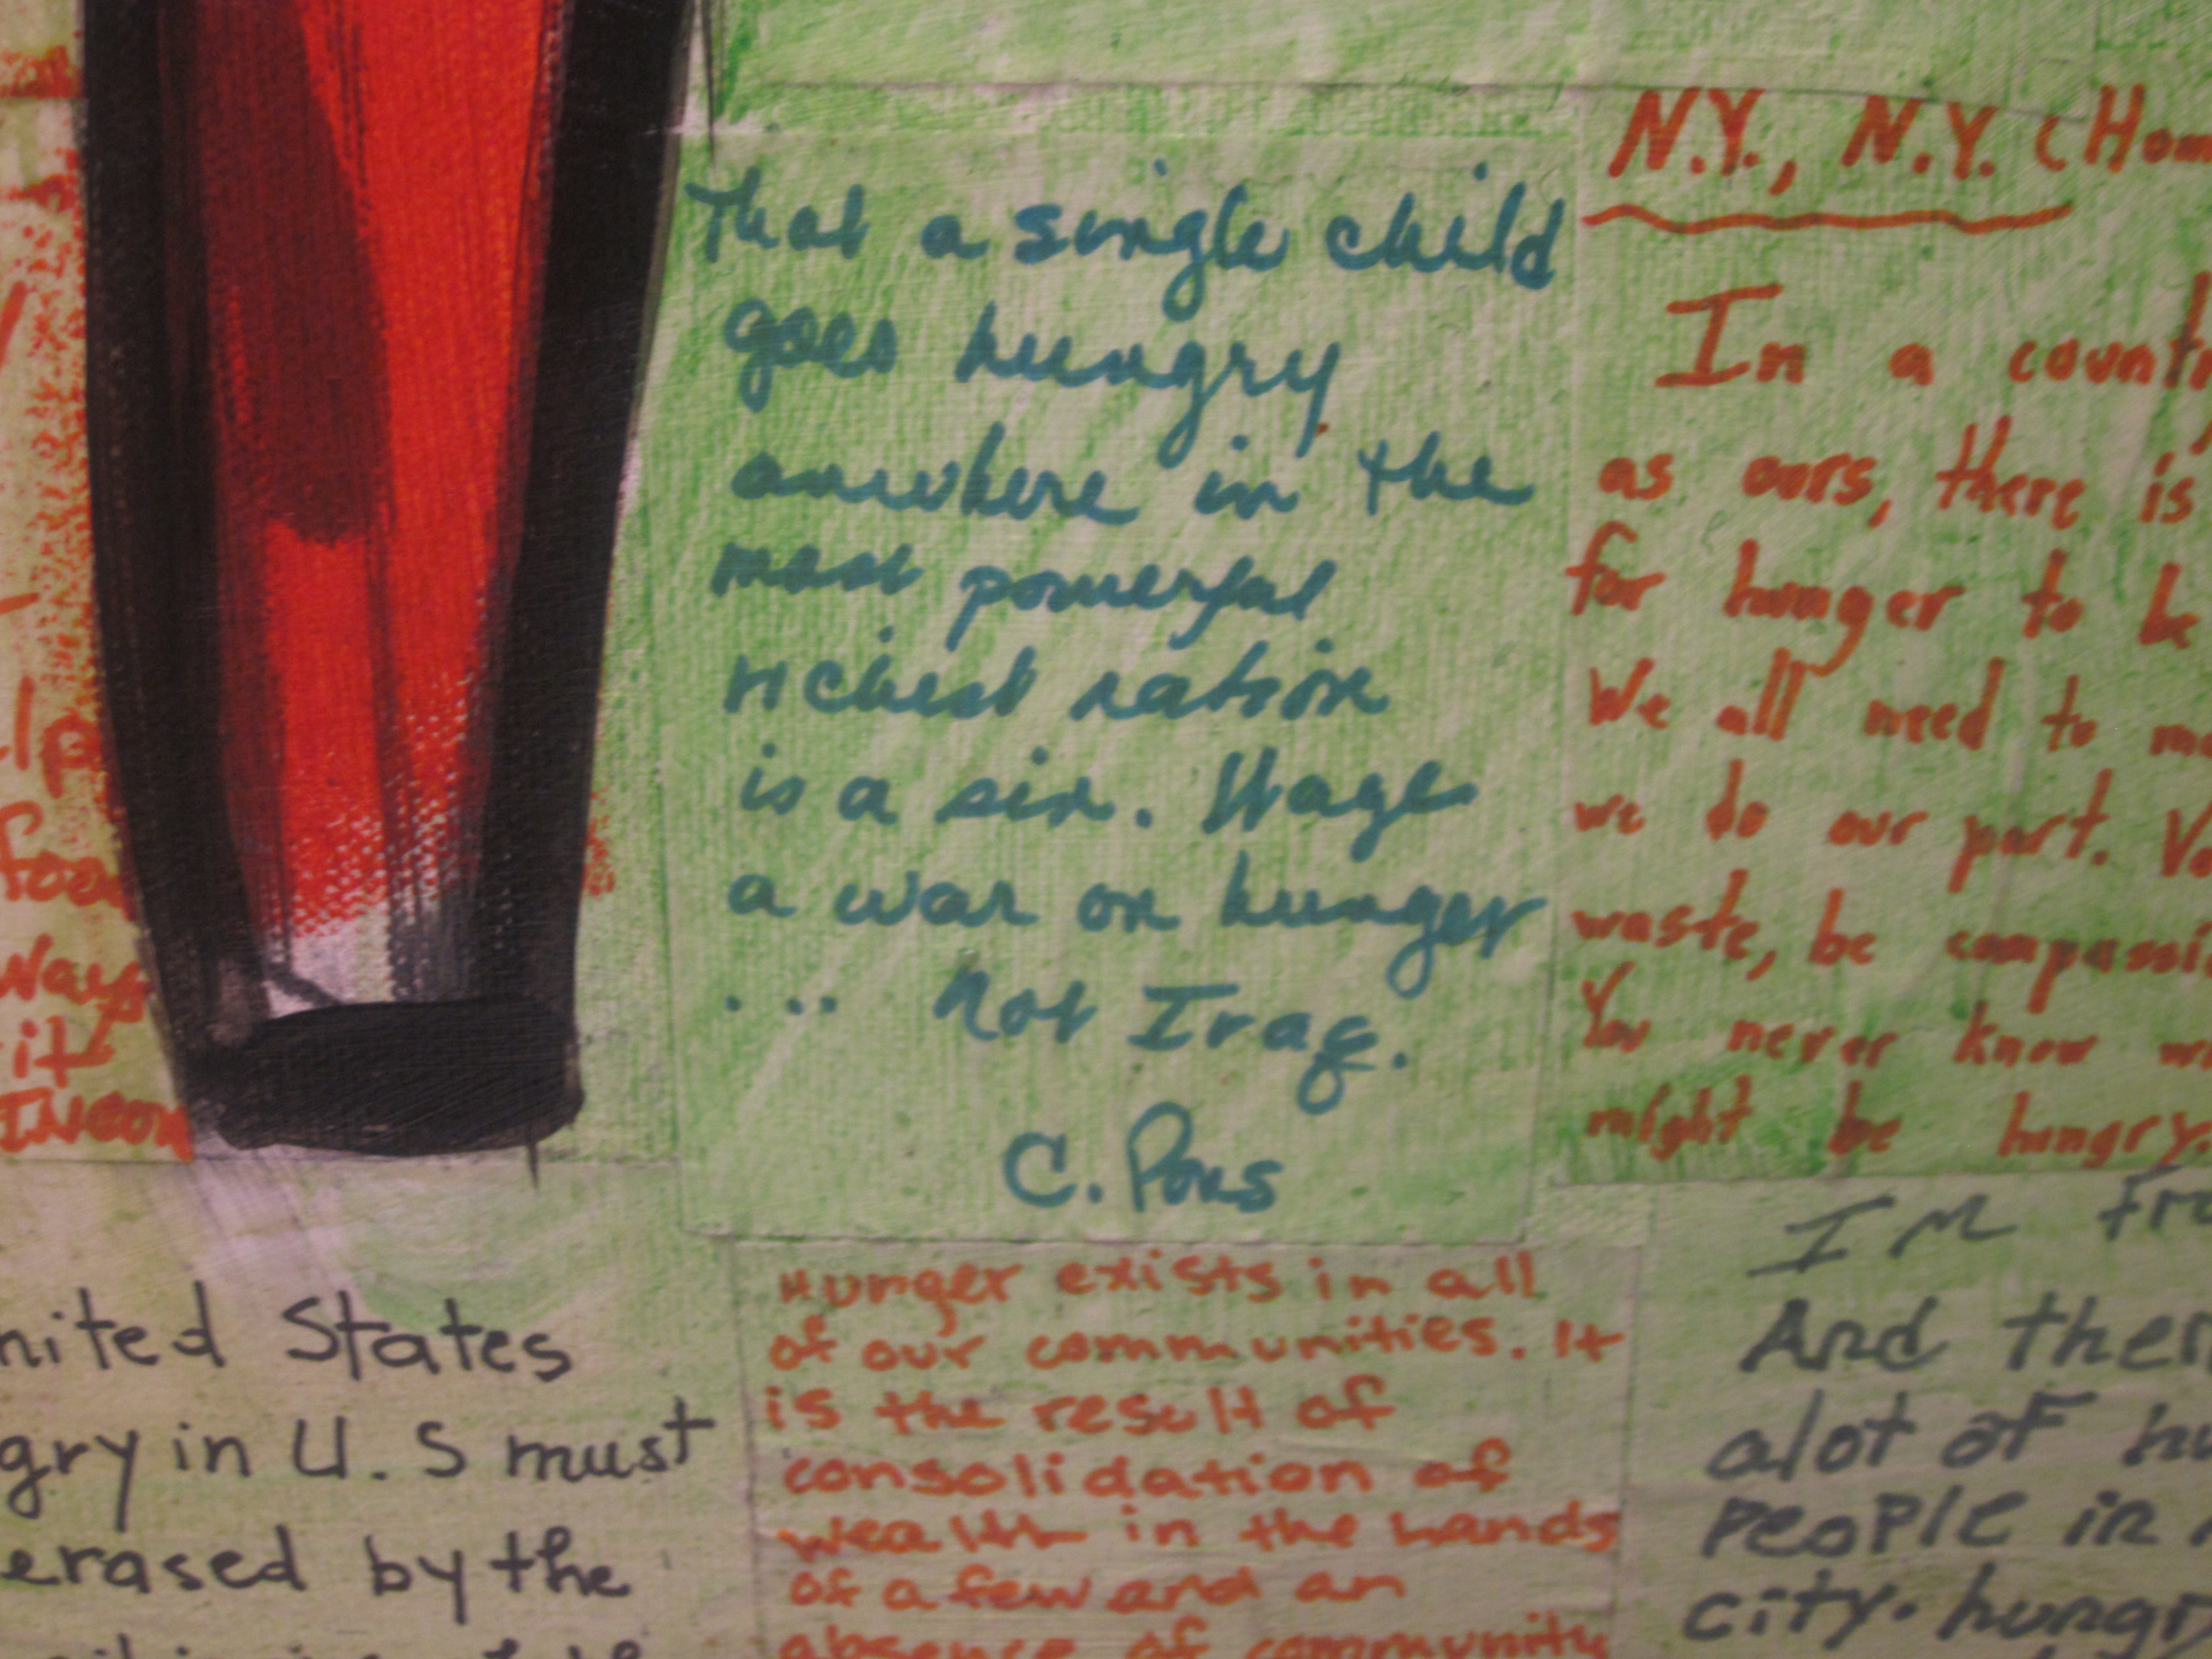 That a single child
goes hungry
anewhere in the
most powerful
richest nation
is a sin. Wage
a war on hunger
... Not Iraq.
C. Pons
N.Y., N.Y. (Hom
In a country
as ours, there is
for hunger to be
We all need to ma
we do our part. Vo
waste, be compassi
You never know w
might be hungry.
lp
foo
Ways
it
INCOM
nited States
gry in U.S must
erased by the
Hunger exists in all
of our communities. It
is the result of
consolidation of
wealth in the hands
of a few and an
absence of community
I'M Fro
And ther
alot of hu
PeoPle in
city. hungr